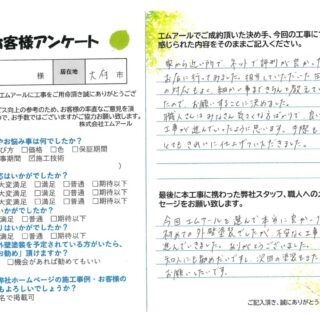 お客様アンケート
様 居住地 大府 市
エムアールに工事をご用命頂き誠にありがとうござ
ビス向上の参考のため、お客様の率直なご意見を頂
ので、お手数ではございますがご協力お願い致します。
株式会社エムアール
やお悩み事は何でしたか？
び方 □価格 □色 □保証期間
事期間 ☑施工技術
応はいかがでしたか？
大変満足 □満足 □普通 □期待以下
大変満足 □満足 □普通 □期待以下
はいかがでしたか？
満足 □満足 □普通 □期待以下
外壁塗装を予定されている方がいたら、
お勧め」頂けますか？
□機会があれば勧めてもいい
弊社ホームページの施工事例・お客様の
もよろしいでしょうか？
名で掲載可
エムアールでご成約頂いた決め手、今回の工事にて
感じられた内容をそのままご記入ください。
家から近い所で ネットで評判が良かった
お店に行ってみました。担当していただいた
の対応もよく、細かい事まできちんと教えて
たので、お願いすることに決めました。
職人さんは みなさん良くなるばかりで、良い
工事が進んでいったように思います。
とてもきれいに仕上げていただきました。
最後に本工事に携わった弊社スタッフ、職人への
セージをお願い致します。
今回エムアールを選んで本当に良かった
初めての外壁塗装でしたが、不安なく工事
進んでいきました。ありがとうございました。
知人にも勧めたいですし、次回の塗装も
お願いしたいです。
ご記入頂き、誠にありがとう